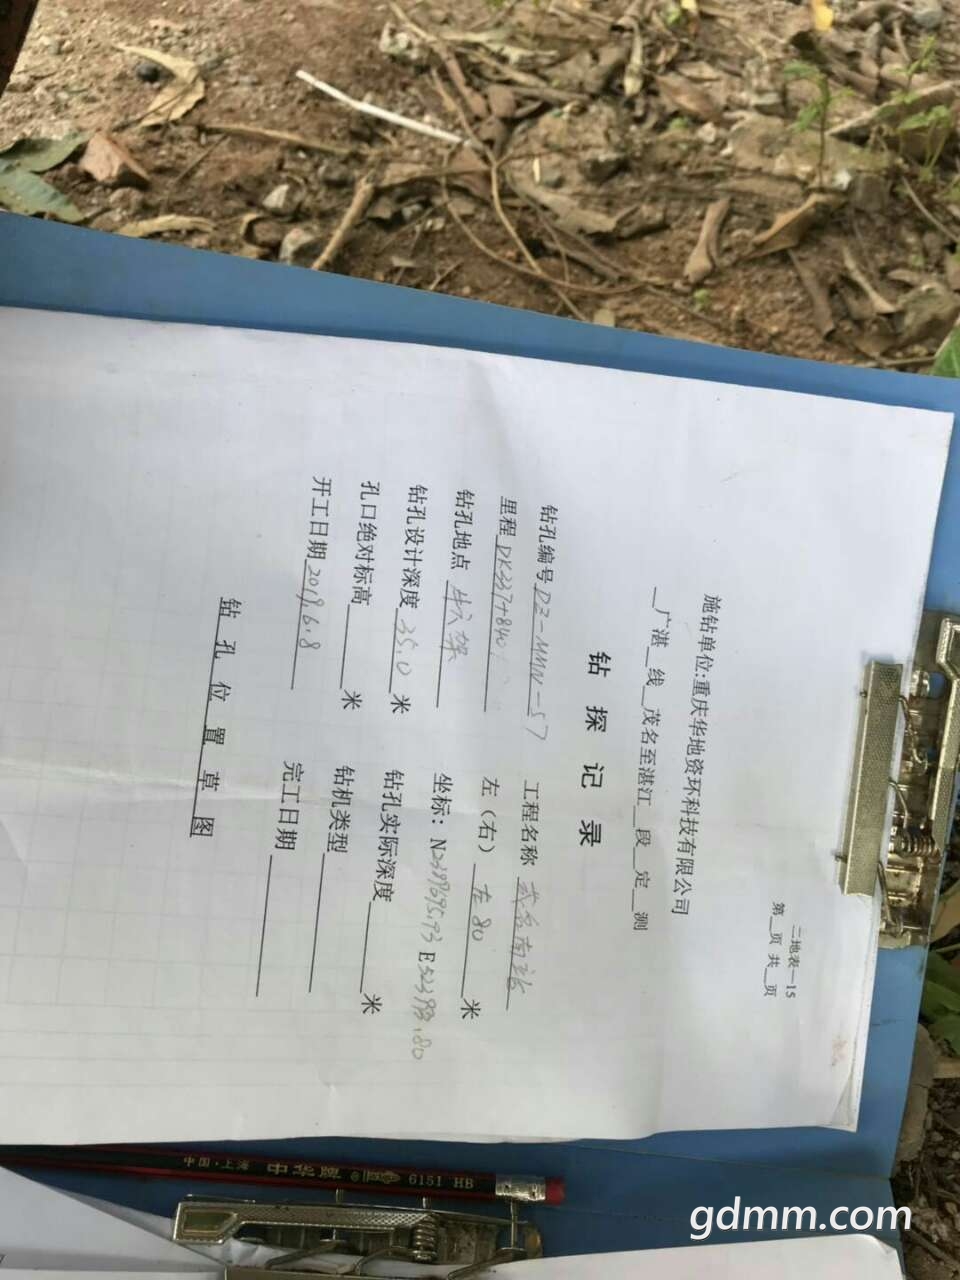 二地表—15
第__页 共__页
施钻单位:重庆华地资环科技有限公司
__广湛__线__茂名至湛江__段__定__测
钻 探 记 录
钻孔编号 DZ-MMN-57 工程名称 茂名南站
里程 DK337+840 左（右）左80 米
钻孔地点 坐标：N2389695.93 E
钻孔设计深度 35.0 米 钻孔实际深度______米
孔口绝对标高______米 钻机类型______
开工日期 2019.6.8 完工日期______
钻 孔 位 置 草 图
中国·上海 中华牌 ® 6151 HB
gdmm.com